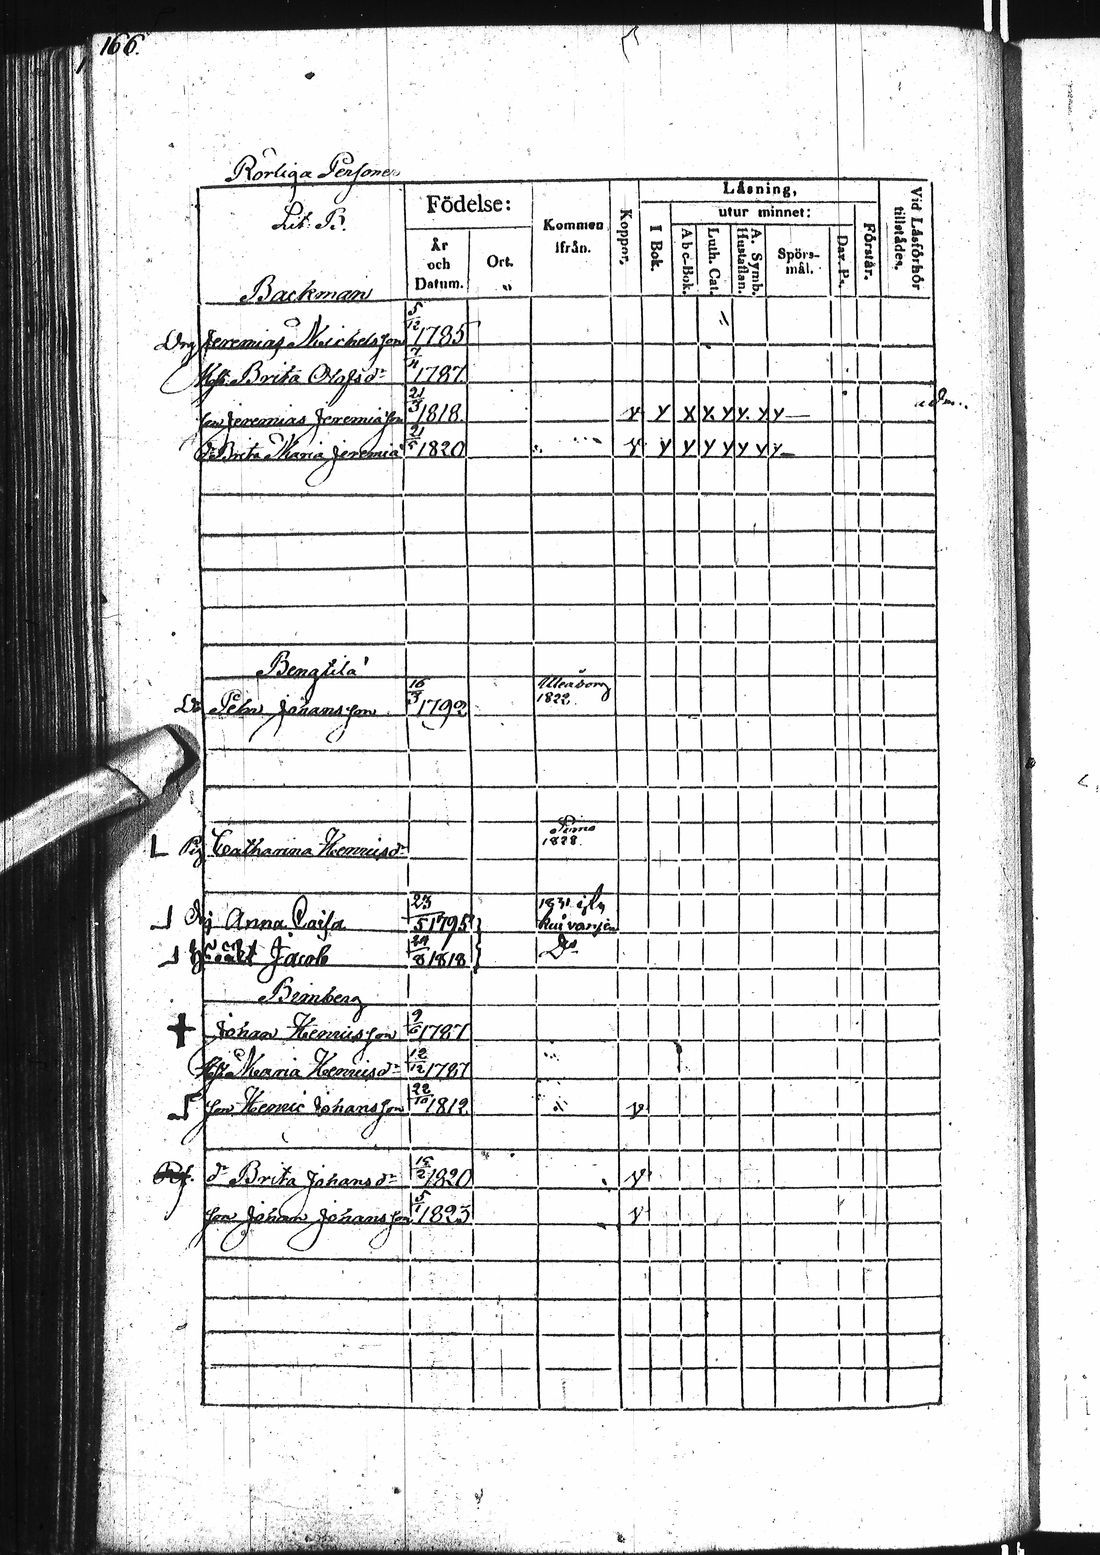 166.
Rörliga Personer
Litt. B.
Födelse:
År och Datum.
Ort.
Kommen ifrån.
Koppor.
Läsning,
I Bok.
utur minnet:
Abc-Bok.
Luth. Cat.
A. Symb. Hustaflan.
Spörs-mål.
Dav. Ps.
Förstår.
Vid Läsförhör tillstädes.
Backman
Drg Jeremias Michelsson 5/12 1785
Hu Brita Olofsdr 7/11 1787
son Jeremias Jeremiason 21/3 1818. v v x x v v v v
dr Brita Maria Jeremiæ 21/5 1820 v v v v v v v v
Bengtilä
Peter Johansson 16/3 1792 Uleåborg 1822.
Pig Catharina Henricsdr 1828.
Anna Caisa 23/5 1795 1831 ifrån Kuivaniemi
Jacob 24/8 1818 Do
Brinberg
Johan Henricsson 9/6 1787
Hu Maria Henricsdr 12/12 1787
son Henric Johansson 22/10 1812 v
dr Brita Johansdr 15/2 1820 v
son Johan Johansson 5/1 1823 v